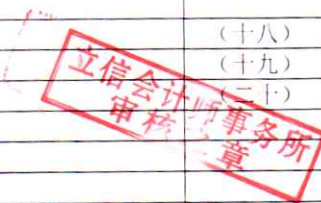 （十八）
（十九）
（二十）
立信会计师事务所
审核 章